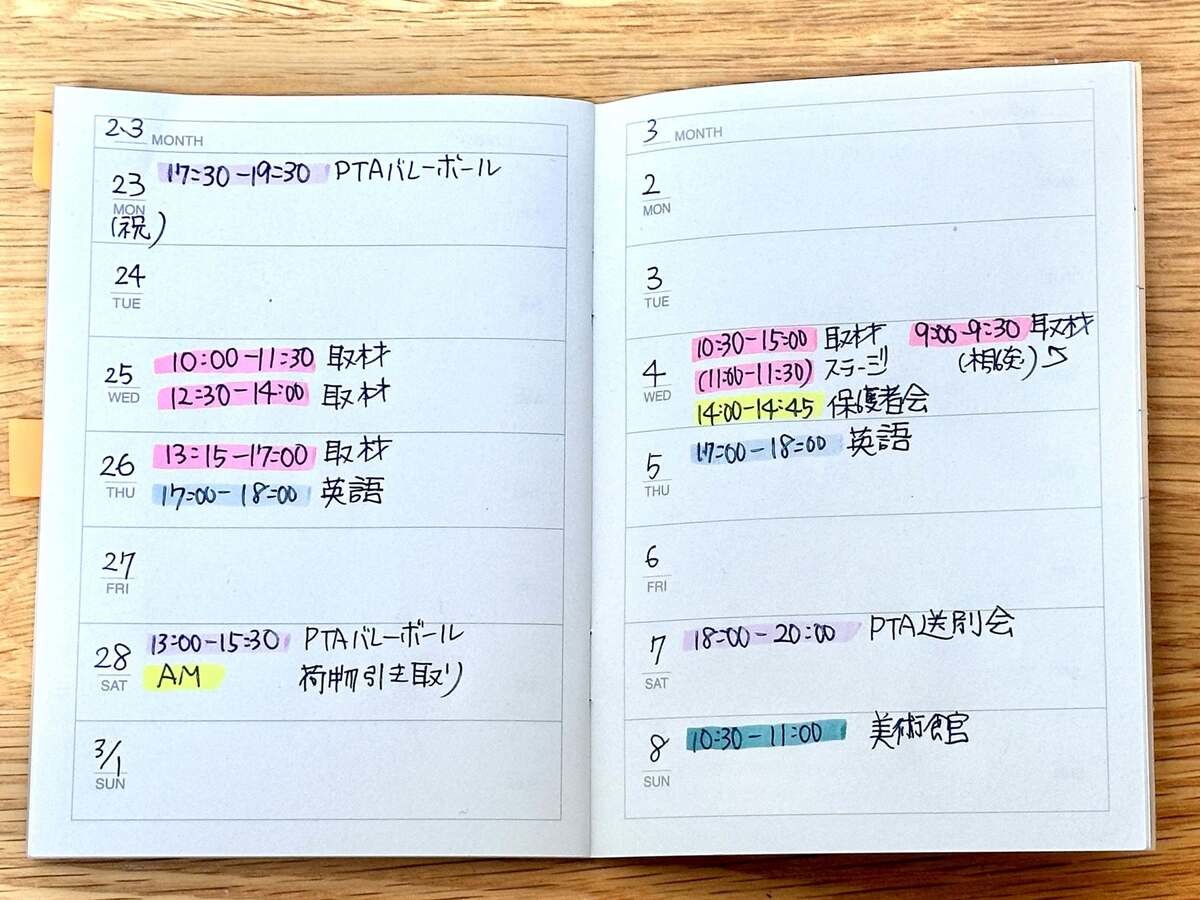 2、3 MONTH
23 MON (祝)
17:30-19:30 PTAバレーボール
24 TUE
25 WED
10:00-11:30 取材
12:30-14:00 取材
26 THU
13:15-17:00 取材
17:00-18:00 英語
27 FRI
28 SAT
13:00-15:30 PTAバレーボール
AM 荷物引き取り
3/1 SUN
3 MONTH
2 MON
3 TUE
4 WED
10:30-15:00 取材 9:00-9:30 取材
(11:00-11:30) ステージ
14:00-14:45 保護者会
5 THU
17:00-18:00 英語
6 FRI
7 SAT
18:00-20:00 PTA送別会
8 SUN
10:30-11:00 美術館